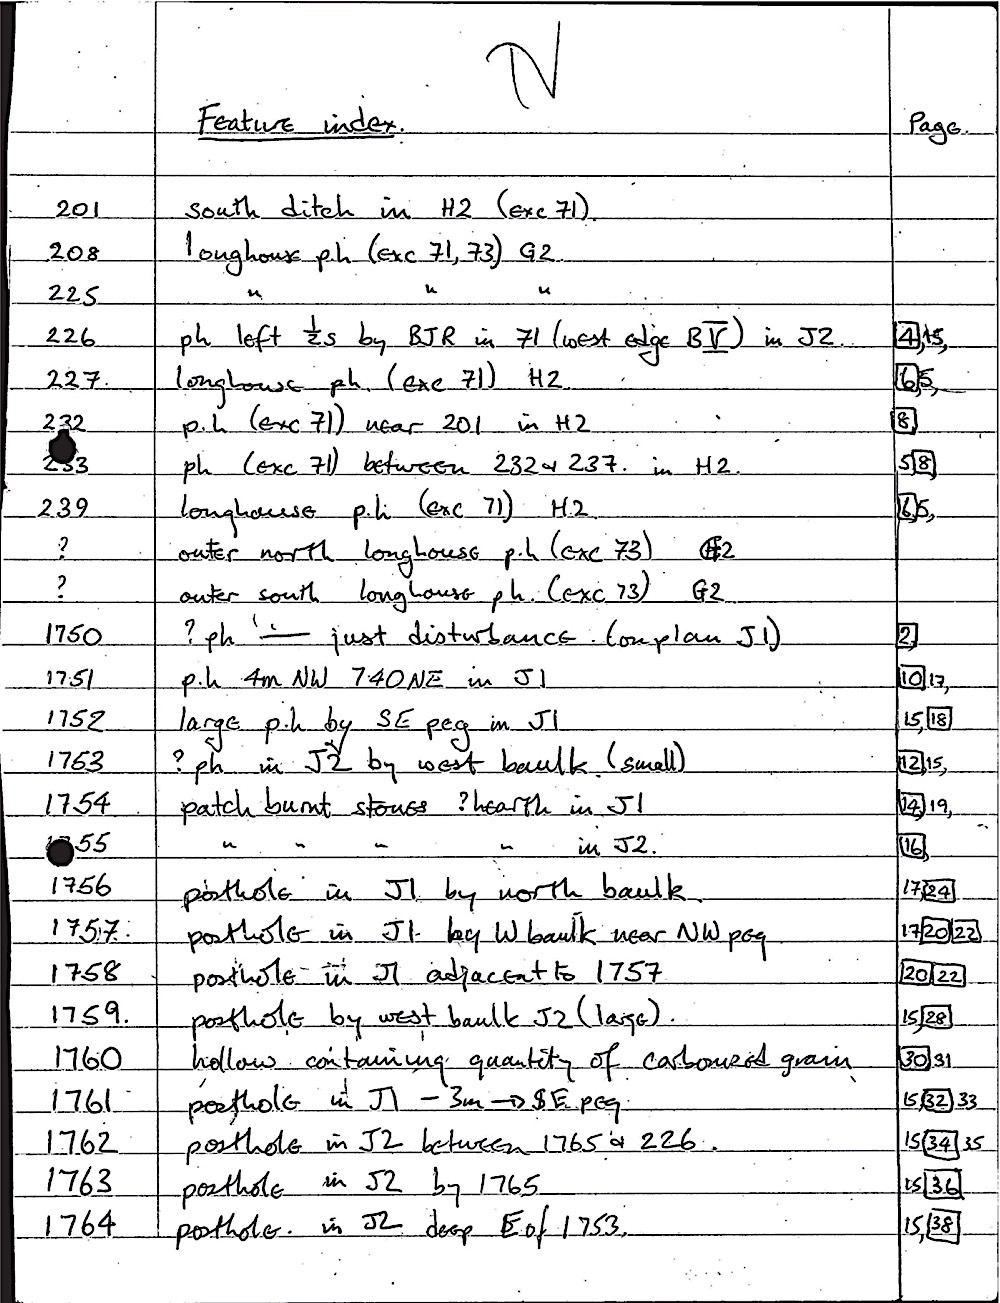 IV
Feature index. Page.
201 south ditch in H2 (exc 71).
208 longhouse ph (exc 71,73) G2
225 " " "
226 ph left ½s by BJR in 71 (west edge BV) in J2. 4,15,
227. longhouse ph. (exc 71) H2 6,5,
232 p.h (exc 71) near 201 in H2 8
233 ph (exc 71) between 232 & 237. in H2. 5 8
239 longhouse p.h (exc 71) H2 6,5,
? outer north longhouse p.h (exc 73) G2
? outer south longhouse ph. (exc 73) G2
1750 ? ph — just disturbance. (on plan J1) 2,
1751 p.h 4m NW 740NE in J1 10 17,
1752 large p.h by SE peg in J1 15, 18
1753 ? ph in J2 by west baulk (small) 12 15,
1754 patch burnt stones ? hearth in J1 14, 19,
1755 " " " " in J2. 16,
1756 posthole in J1 by north baulk. 17 24
1757. posthole in J1 by W baulk near NW peg 17 20 22
1758 posthole in J1 adjacent to 1757 20 22
1759. posthole by west baulk J2 (large). 15 28
1760 hollow containing quantity of carbonized grain 30 31
1761 posthole in J1 - 3m → SE peg. 15 32 33
1762 posthole in J2 between 1765 & 226. 15 34 35
1763 posthole in J2 by 1765 15 36
1764 posthole. in J2 deep E of 1753. 15, 38